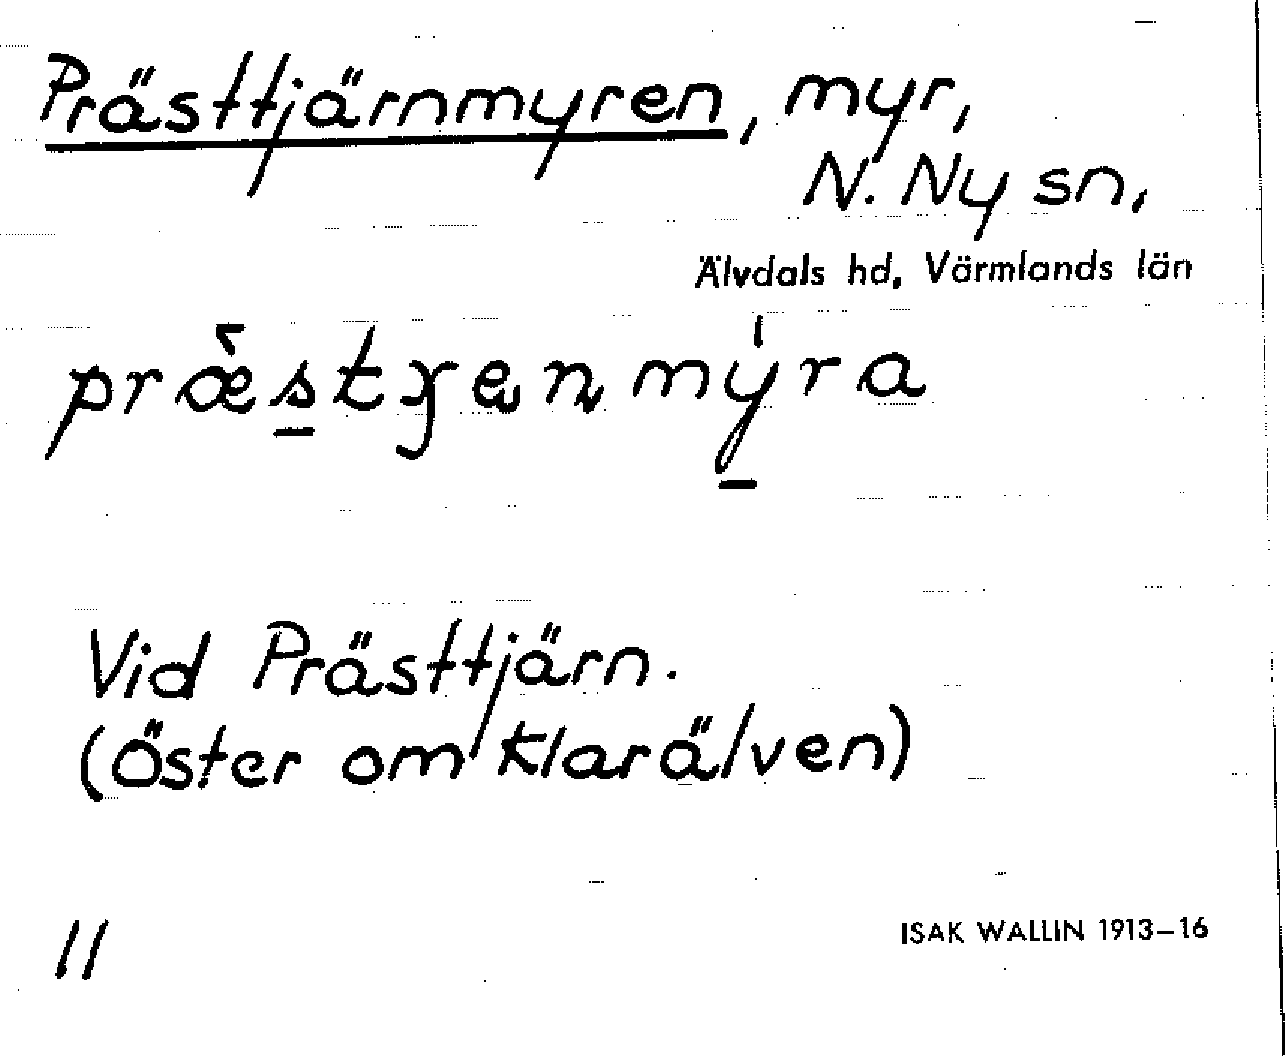 Prästtjärnmyren, myr,
N. Ny sn,
Älvdals hd, Värmlands län
Vid Prästtjärn.
(Öster om Klarälven)
11
ISAK WALLIN 1913–16